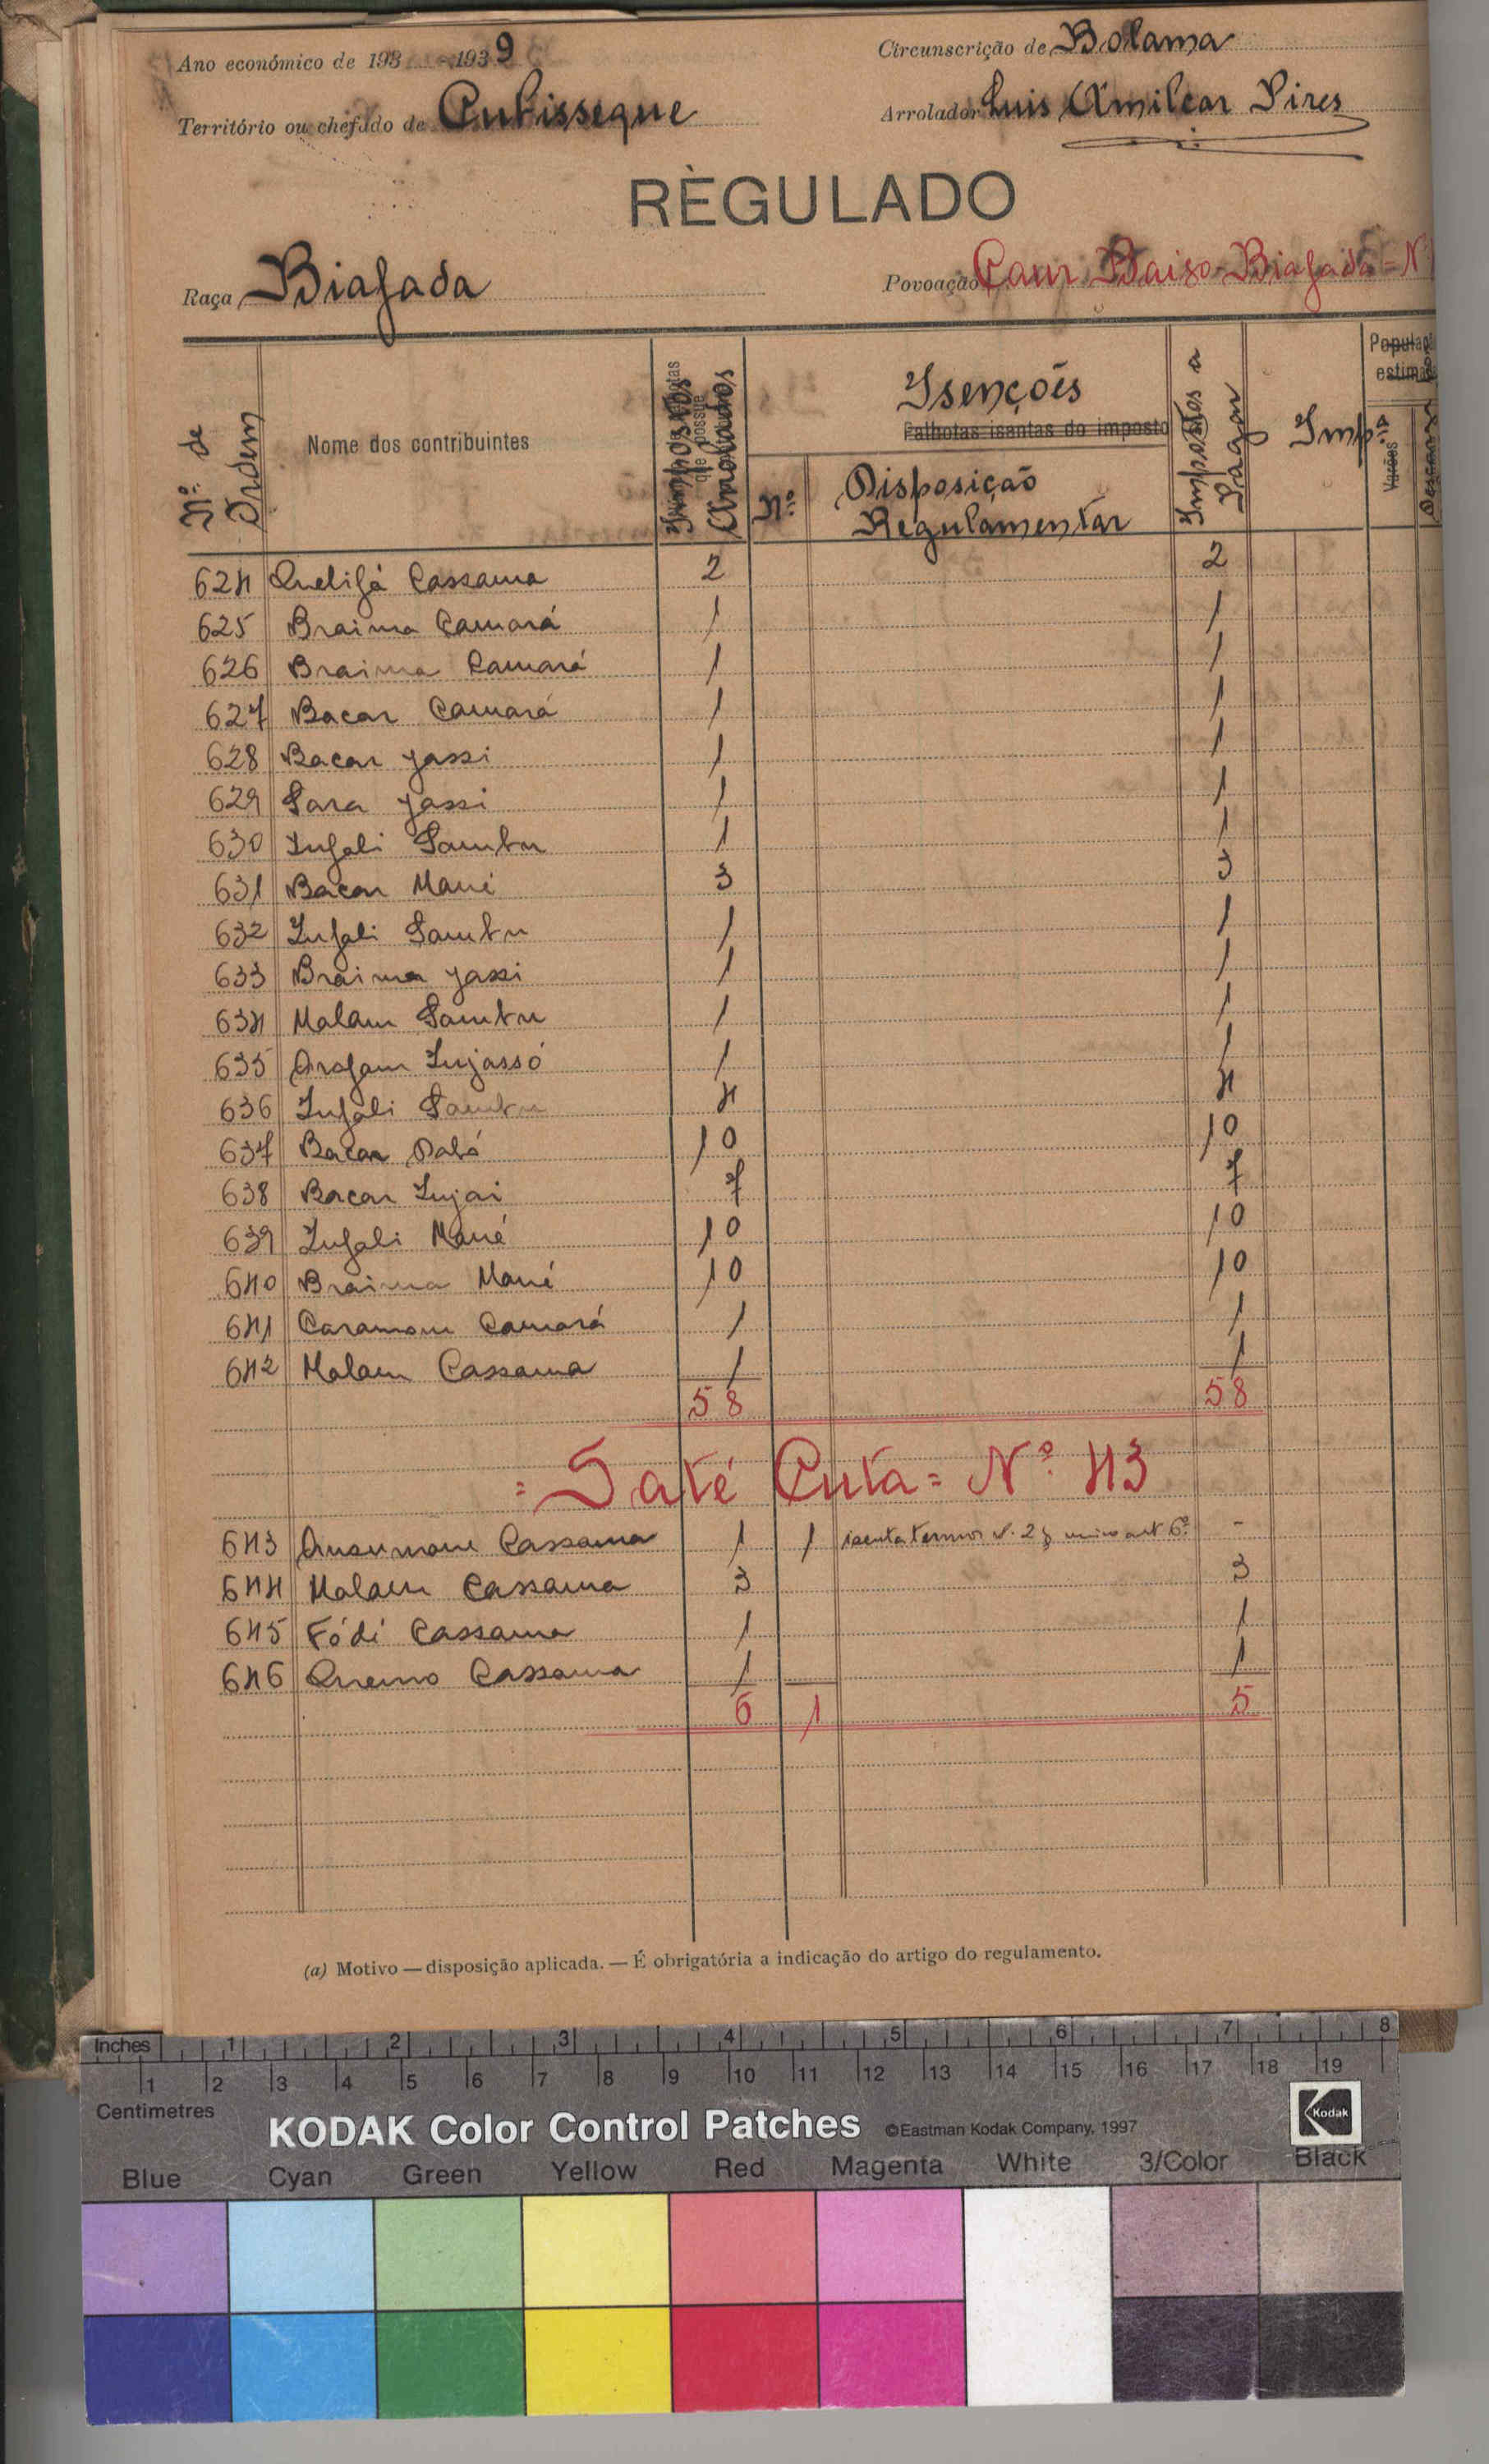 Ano económico de 193 -1939
Circunscrição de Bolama
Território ou chefado de Cubisseque
Arrolador Luis Amilcar Pires
RÈGULADO
Raça Biafada
Povoação Gam Baiso-Biafada = N
N.º de Ordem
Nome dos contribuintes
Impostos Arrolados
Isençoīs
Palhotas isentas do imposto
N.º
Disposição Regulamentar
Impostos a Pagar
Imp.
Varões
624 Quelifá Cassama 2 2
625 Braima Camará 1 1
626 Braima Camará 1 1
627 Bacar Camará 1 1
628 Bacar Jassi 1 1
629 Sara Jassi 1 1
630 Infali Sambu 1 1
631 Bacar Mané 3 3
632 Infali Sambu 1 1
633 Braima Jassi 1 1
634 Malam Sambu 1 1
635 Arafam Injassó 1 1
636 Infali Sambu 4 4
637 Bacar Dabó 10 10
638 Bacar Injai 7 7
639 Infali Mané 10 10
640 Braima Mané 10 10
641 Caramom Camará 1 1
642 Malam Cassama 1 1
58 58
= Saté Cuta = N.º 43
643 Ansumane Cassama 1 1 isenta termos n.º 2 § unico art 6.º -
644 Malam Cassama 3 3
645 Fódé Cassama 1 1
646 Quemo Cassama 1 1
6 1 5
(a) Motivo — disposição aplicada. — É obrigatória a indicação do artigo do regulamento.
Inches 1 2 3 4 5 6 7 8
1 2 3 4 5 6 7 8 9 10 11 12 13 14 15 16 17 18 19
Centimetres
KODAK Color Control Patches ©Eastman Kodak Company, 1997 Kodak
Blue Cyan Green Yellow Red Magenta White 3/Color Black